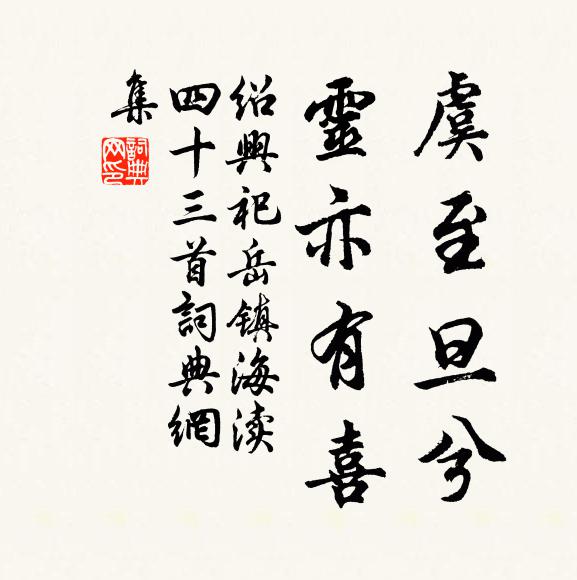 虞至旦兮
靈亦有喜
紹興祀岳鎮海瀆
四十三首詞典網
集
詞典
网印